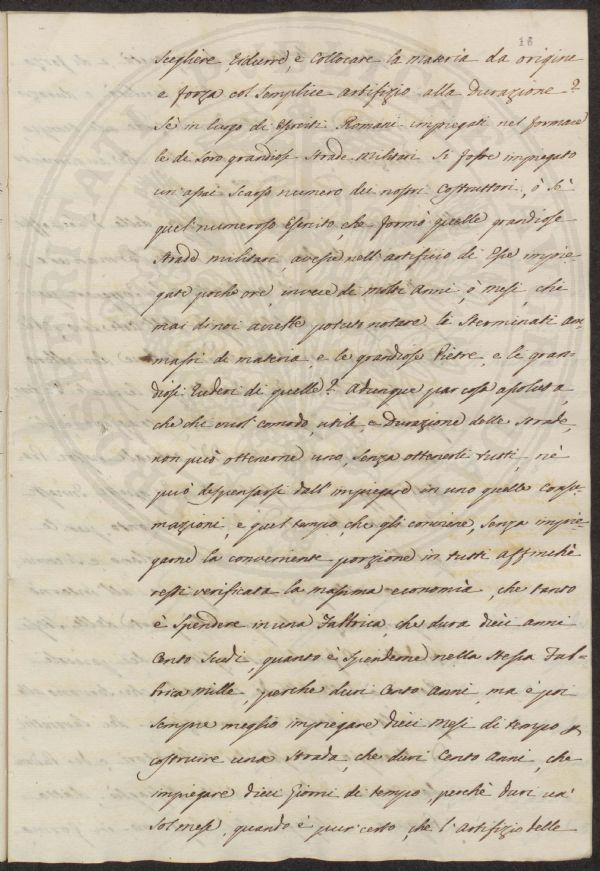 18
scegliere, ridurre, e collocare la materia da origine
e forza col semplice artifizio alla Durazione?
Sè in luogo di Eserciti Romani impiegati nel formare
le di loro grandiose strade Militari si fosse impiegato
un' assai scarso numero dei nostri Costruttori, ò sè
quel numeroso Esercito, che formò quelle grandiose
strade militari, avesse nell' artificio di Esse impie-
gate poche ore, invece di molti Anni, ò Mesi, chi
mai di noi avrebbe potuto notare li sterminati am-
massi di materia, e le grandiose Pietre, e li gran-
diosi Ruderi di quelle? Adunque par cosa assoluta,
che chi vuol comodo, utile, e Durazione delle strade,
non può ottenerne uno, senza ottenerli tutti, nè
può dispensarsi dall' impiegare in uno quelle consu-
mazioni, e quel tempo, che gli conviene, senza impie-
garne la conveniente porzione in tutti affinchè
resti verificata la massima economia, che tanto
è spendere in una Fabbrica, che dura dieci anni
Cento Scudi, quanto è spenderne nella stessa Fab-
brica mille, perche duri Cento Anni, ma è poi
sempre meglio impiegare dieci Mesi di tempo p
costruire una strada, che duri Cento Anni, che
impiegare dieci Giorni di tempo, perchè duri un'
sol mese, quando è pur certo, che l'Artifizio delle